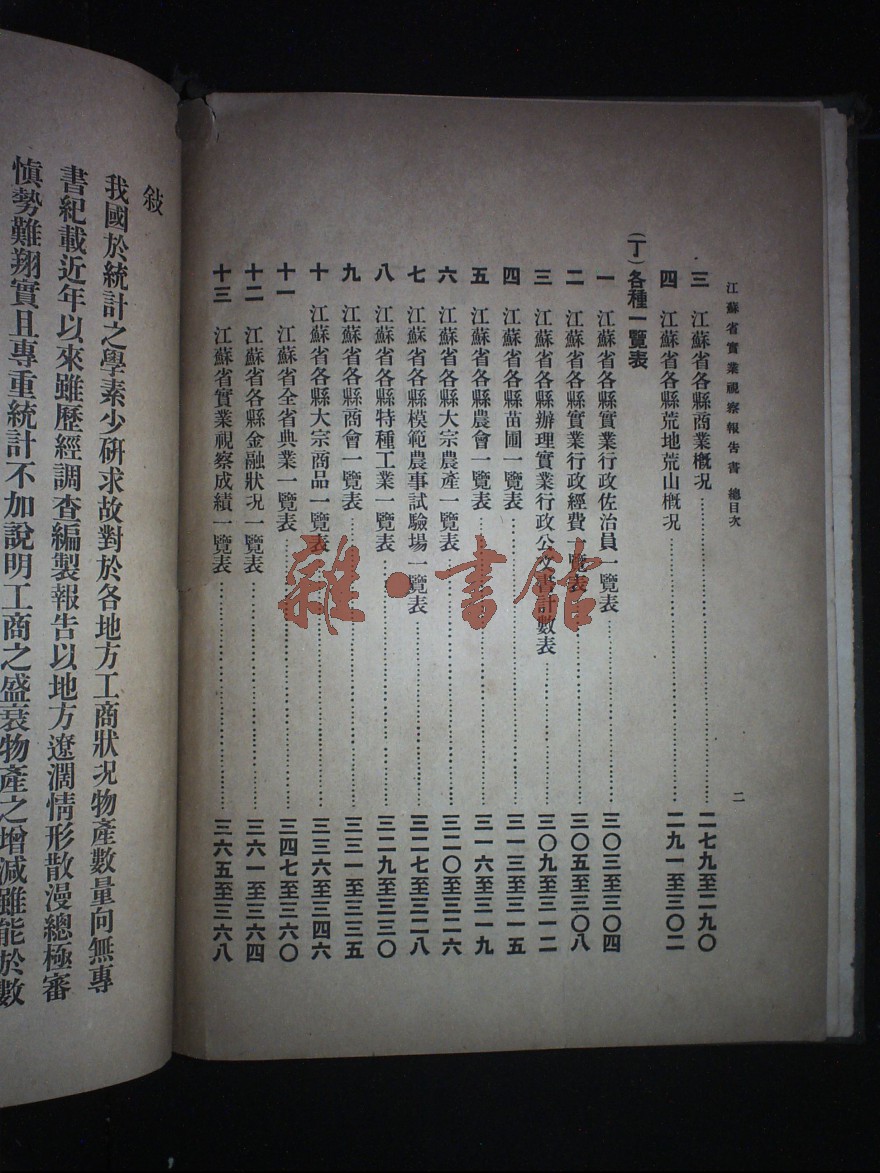 江蘇省實業視察報告書 總目次
二
三 江蘇省各縣商業概況 二七九至二九〇
四 江蘇省各縣荒地荒山概況 二九一至三〇二
(丁)各種一覽表
一 江蘇省各縣實業行政佐治員一覽表 三〇三至三〇四
二 江蘇省各縣實業行政經費一覽表 三〇五至三〇八
三 江蘇省各縣辦理實業行政公文書計數表 三〇九至三一二
四 江蘇省各縣苗圃一覽表 三一三至三一五
五 江蘇省各縣農會一覽表 三一六至三一九
六 江蘇省各縣大宗農產一覽表 三二〇至三二六
七 江蘇省各縣模範農事試驗場一覽表 三二七至三二八
八 江蘇省各縣特種工業一覽表 三二九至三三〇
九 江蘇省各縣商會一覽表 三三一至三三五
十 江蘇省各縣大宗商品一覽表 三三六至三四六
十一 江蘇省全省典業一覽表 三四七至三六〇
十二 江蘇省各縣金融狀況一覽表 三六一至三六四
十三 江蘇省實業視察成績一覽表 三六五至三六八
敍
我國於統計之學素少硏求故對於各地方工商狀況物產數量向無專
書紀載近年以來雖歷經調查編製報告以地方遼濶情形散漫總極審
愼勢難翔實且專重統計不加說明工商之盛衰物產之增減雖能於數
雜·書館